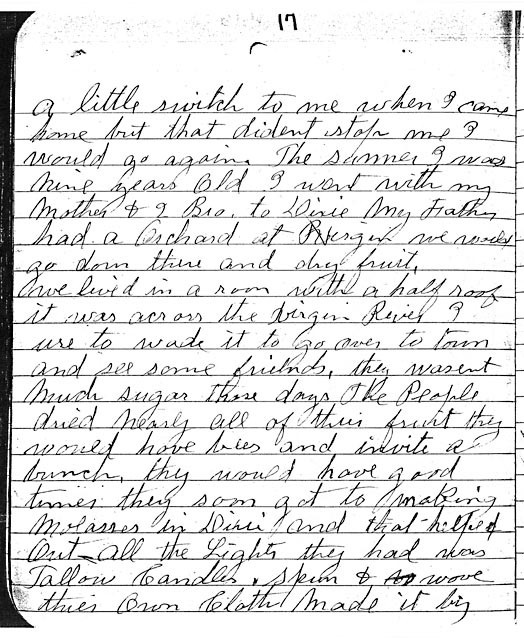 17
a little switch to me when I came
home but that dident stop me I
would go again. The summer I was
Nine years Old I went with my
Mother & 2 Bro. to Dixie My Father
had a Orchard at Virgin we would
go down there and dry fruit.
we lived in a room with a half roof
it was across the Virgin River I
use to wade it to go over to town
and see some friends, they wasent
Much sugar those days The People
dried Nearly all of their fruit they
would have bees and invite a
bunch, they would have good
times they soon got to Making
Molasses in Dixie and that helped
Out all the Lights they had was
Tallow Candles. spun & wove
thier Own Cloth Made it by